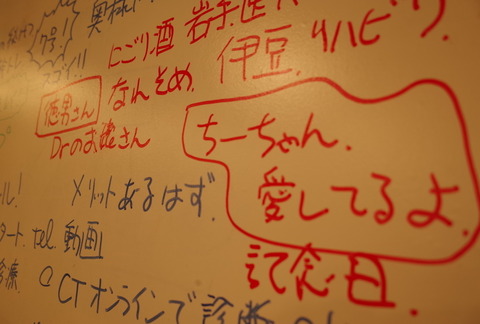 奥林
号!
にごり酒 岩手医
スゴイ!!
なんそめ. 伊豆. リハビリ
徳男さん
Drのお爺さん
ちーちゃん.
愛してるよ.
ル!
メリットあるはず.
記念日.
タート. tel. 動画
診療.
CTオンラインで診断